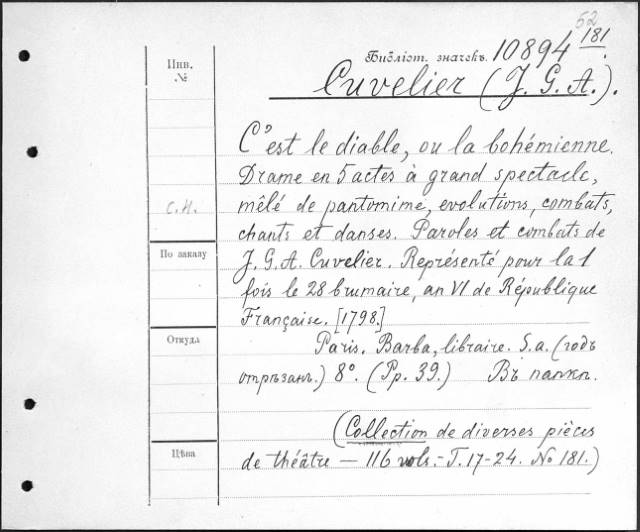 52
Библіот. значекъ. 10894 181.
Инв. №
Cuvelier (J. G. A.).
C'est le diable, ou la bohémienne.
Drame en 5 actes à grand spectacle,
mêlé de pantomime, evolutions, combats,
С.Н.
chants et danses. Paroles et combats de
По заказу
J. G. A. Cuvelier. Représenté pour la 1
fois le 28 brumaire, an VI de République
Française. [1798.]
Откуда
Paris. Barba, libraire. S. a. (годъ
отрѣзанъ.) 8°. (Pp. 39.) Въ папкѣ.
(Collection de diverses pièces
Цѣна
de théâtre — 116 vols. - T. 17-24. No 181.)